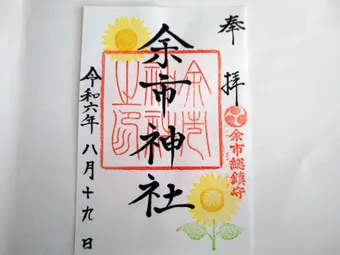 奉拝
余市総鎮守
余市神社
令和六年八月十九日